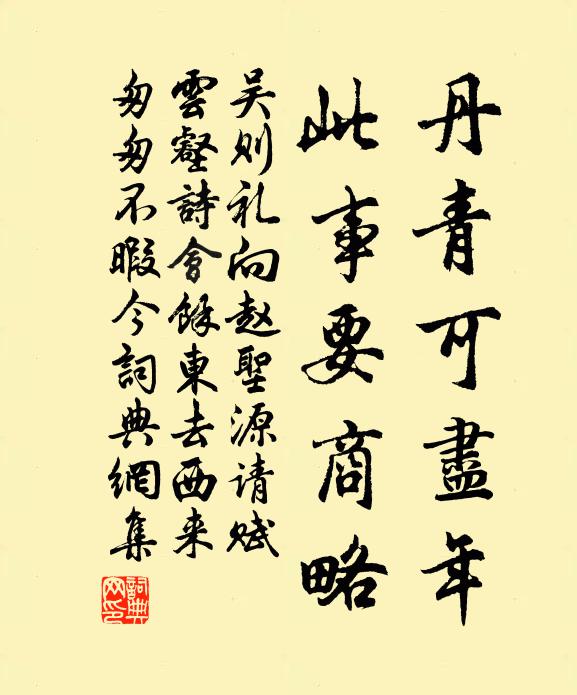 丹青可盡年
此事要商略
吴则礼向赵聖源请赋
雲壑詩會餘東去西来
匆匆不暇今詞典網集
詞典
网印